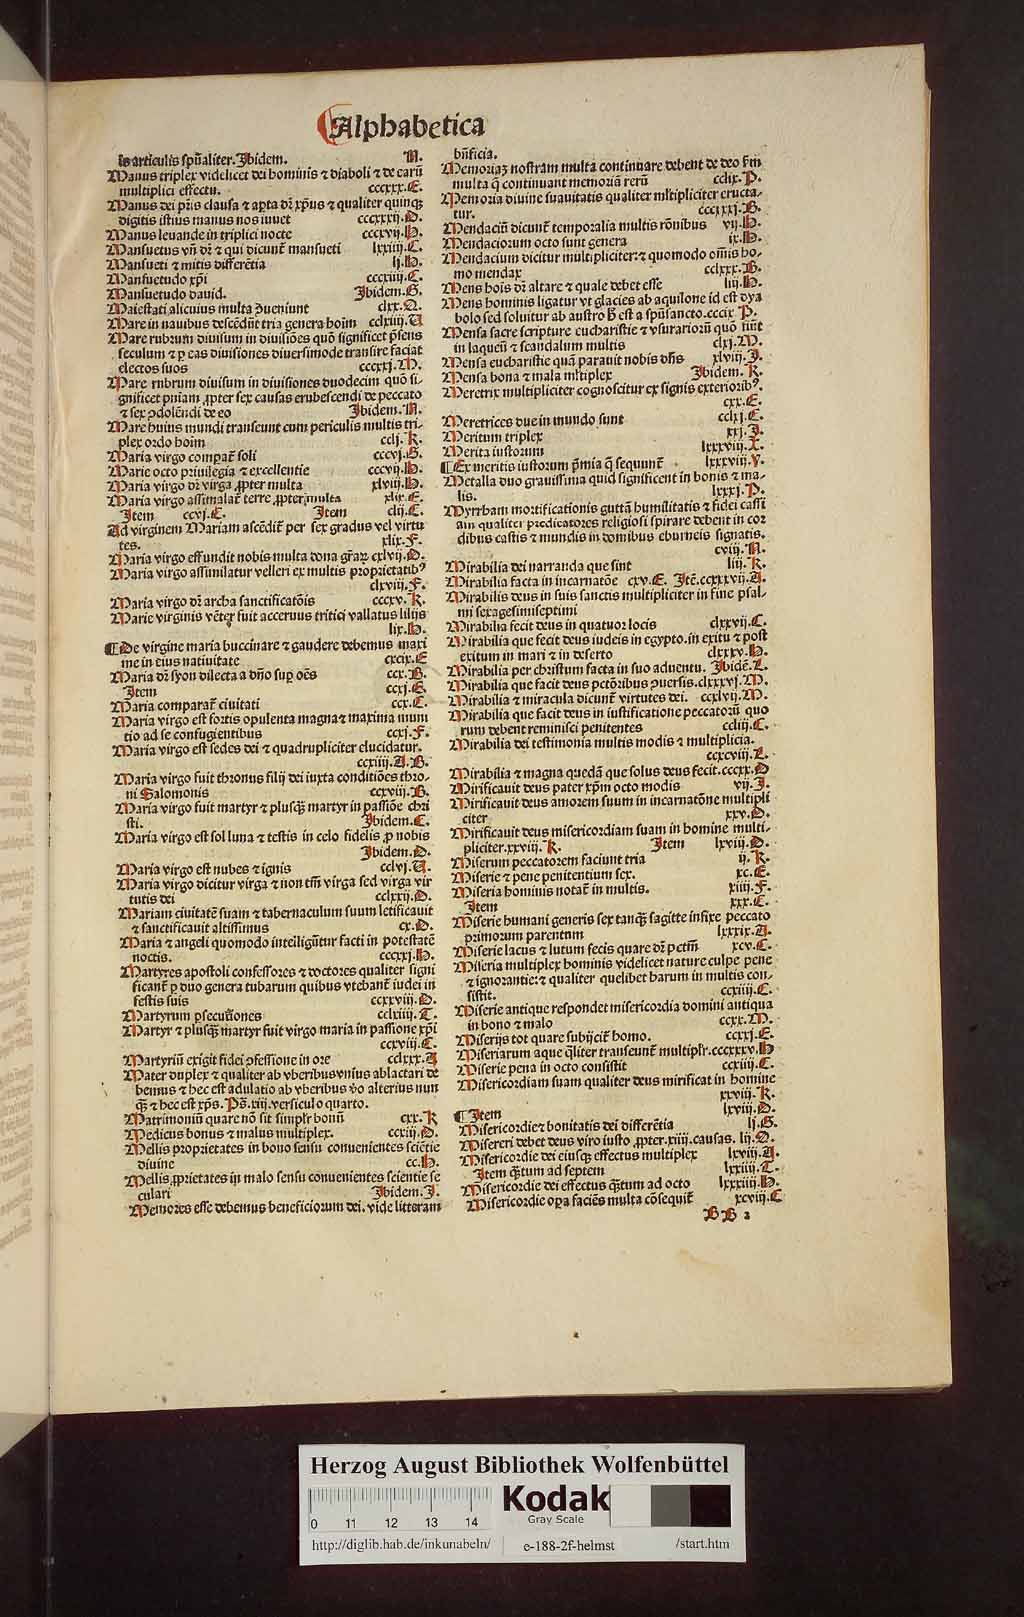 Alphabetica
is articulis spũaliter. Ibidem. N.
Manus triplex videlicet dei hominis ⁊ diaboli ⁊ de earũ
multiplici effectu. cccxxx.E.
Manus dei pr̃is clausa ⁊ apta dr̃ xp̃us ⁊ qualiter quinqꝫ
digitis istius manus nos iuuet cccxxxij.O.
Manus leuande in triplici nocte cccxvij.H.
Mansuetus vñ dr̃ ⁊ qui dicunt̃ mansueti lxxiiij.C.
Mansueti ⁊ mitis differẽtia lj.H.
Mansuetudo xp̃i cccxiiij.C.
Mansuetudo dauid. Ibidem.G.
Maiestati alicuius multa ꝯueniunt clxx.N.
Mare in nauibus descẽdũt tria genera hoĩm cclxiiij.U
Mare rubrum diuisum in diuisiões quõ significet p̃sens
seculum ⁊ ꝑ eas diuisiones diuersimode transire faciat
electos suos cccxxj.M.
Mare rubrum diuisum in diuisiones duodecim quõ si-
gnificet pñiam ꝓpter sex causas erubescendi de peccato
⁊ sex ꝯdolẽndi de eo Ibidem.N.
Mare huius mundi transeunt cum periculis multis tri-
plex ordo hoĩm cclj.K.
Maria virgo compat̃ soli cccvj.G.
Marie octo priuilegia ⁊ excellentie cccvij.H.
Maria virgo dr̃ virga ꝓpter multa xlviij.H.
Maria virgo assimalat̃ terre ꝓpter multa xlix.E.
Item ccvj.C. Item clij.C.
Ad virginem Mariam ascẽdit̃ per sex gradus vel virtu
tes. xlix.F.
Maria virgo effundit nobis multa dona gr̃aꝝ cxlvij.O.
Maria virgo assimilatur velleri ex multis proprietatibꝰ
clxviij.F.
Maria virgo dr̃ archa sanctificatõis cccxv.K.
Marie virginis vẽter fuit aceruus tritici vallatus lilijs
lix.H.
¶ De virgine maria buccinare ⁊ gaudere debemus maxi
me in eius natiuitate cxcix.E
Maria dr̃ syon dilecta a dño suꝑ oẽs ccx.B.
Item ccxj.E.
Maria comparat̃ ciuitati ccx.C.
Maria virgo est fortis opulenta magna ⁊ maxima muni
tio ad se confugientibus ccxj.F.
Maria virgo est sedes dei ⁊ quadrupliciter elucidatur.
ccxiiij.A.B.
Maria virgo fuit thronus filij dei iuxta conditiões thro-
ni Salomonis ccxviij.B.
Maria virgo fuit martyr ⁊ plusqꝫ martyr in passiõe chri
sti. Ibidem.C.
Maria virgo est sol luna ⁊ testis in celo fidelis ꝑ nobis
Ibidem.D.
Maria virgo est nubes ⁊ ignis cclvj.U.
Maria virgo dicitur virga ⁊ non tm̃ virga sed virga vir
tutis dei cclxxij.O.
Mariam ciuitatẽ suam ⁊ tabernaculum suum letificauit
⁊ sanctificauit altissimus cx.O.
Maria ⁊ angeli quomodo intelligũtur facti in potestatẽ
noctis. cccxxj.H.
Martyres apostoli confessores ⁊ doctores qualiter signi
ficant̃ ꝑ duo genera tubarum quibus vtebant̃ iudei in
festis suis ccxxviij.O.
Martyrum ꝑsecutiones cclxiij.T.
Martyr ⁊ plusqꝫ martyr fuit virgo maria in passione xp̃i
ccxviij.C.
Martyriũ exigit fidei ꝯfessione in ore cclxxx.A
Mater duplex ⁊ qualiter ab vberibus vnius ablactari de
bemus ⁊ hec est adulatio ab vberibus v̊o alterius nun
qꝫ ⁊ hec est xp̃s. Ps̃.xiij.versiculo quarto.
Matrimoniũ quare nõ sit simplr̃ bonũ cxx.K
Medicus bonus ⁊ malus multiplex. ccxiij.O.
Mellis proprietates in bono sensu conuenientes sciẽtie
diuine cc.H.
Mellis ꝓprietates in malo sensu conuenientes scientie se
culari Ibidem.I.
Memores esse debemus beneficiorum dei. vide litteram
bñficia.
Memoriaꝫ nostram multa continuare debent de deo s̃m
multa q̃ continuant memoriã rerũ cclix.P.
Memoria diuine suauitatis qualiter ml̃tipliciter eructa-
tur. cccxxxj.B.
Mendaciũ dicunt̃ temporalia multis rõnibus vij.H.
Mendaciorum octo sunt genera ix.H.
Mendacium dicitur multipliciter: ⁊ quomodo om̃is ho-
mo mendax cclxxx.B.
Mens hoĩs dr̃ altare ⁊ quale debet esse liij.H.
Mens hominis ligatur vt glacies ab aquilone id est dya
bolo sed soluitur ab austro h̃ est a spũsancto.cccix P.
Mensa sacre scripture eucharistie ⁊ vsurariorũ quõ fiũt
in laqueũ ⁊ scandalum multis clxj.M.
Mensa eucharistie quã parauit nobis dñs xlviij.I.
Mensa bona ⁊ mala ml̃tiplex Ibidem.K.
Meretrix multipliciter cognoscitur ex signis exterioribꝰ.
cxx.E.
Meretrices due in mundo sunt cclxj.E.
Meritum triplex xxj.I.
Merita iustorum lxxxviij.X.
¶ Ex meritis iustorum p̃mia q̃ sequunt̃ lxxxviij.Y.
Metalla duo grauissima quid significent in bonis ⁊ ma-
lis. lxxxj.P.
Myrrham mortificationis guttã humilitatis ⁊ fidei cassi
am qualiter predicatores religiosi spirare debent in cor
dibus castis ⁊ mundis in domibus eburneis signatis.
cviij.N.
Mirabilia dei narranda que sint liij.K.
Mirabilia facta in incarnatõe cxv.E. Itẽ.ccxxxvij.A.
Mirabilis deus in suis sanctis multipliciter in fine psal-
mi sexagesimiseptimi
Mirabilia fecit deus in quatuor locis clxxvij.C.
Mirabilia que fecit deus iudeis in egypto.in exitu ⁊ post
exitum in mari ⁊ in deserto clxxxv.H.
Mirabilia per christum facta in suo aduentu. Ibidẽ.L.
Mirabilia que facit deus pctõribus ꝯuersis.clxxxvj.M.
Mirabilia ⁊ miracula dicunt̃ virtutes dei. ccxlvij.M.
Mirabilia que facit deus in iustificatione peccatorũ quo
rum debent reminisci penitentes ccliij.C.
Mirabilia dei testimonia multis modis ⁊ multiplicia.
ccxcviij.L.
Mirabilia ⁊ magna quedã que solus deus fecit.cccxx.O
Mirificauit deus pater xp̃m octo modis vij.I.
Mirificauit deus amorem suum in incarnatõne multipli
citer xxv.O.
Mirificauit deus misericordiam suam in homine multi-
pliciter.xxviij.K. Item lxviij.O.
Miserum peccatorem faciunt tria ij.K.
Miserie ⁊ pene penitentium sex. xc.E.
Miseria hominis notat̃ in multis. xiiij.F.
Item xxx.C.
Miserie humani generis sex tanqꝫ sagitte infixe peccato
primorum parentum lxxxix.A.
Miserie lacus ⁊ lutum fecis quare dr̃ pctm̃ xcv.C.
Miseria multiplex hominis videlicet nature culpe pene
⁊ ignorantie: ⁊ qualiter quelibet harum in multis con-
sistit. ccxiiij.C.
Miserie antique respondet misericordia domini antiqua
in bono ⁊ malo ccxx.M.
Miserijs tot quare subijcit̃ homo. ccxxj.E.
Miseriarum aque q̃liter transeunt̃ multiplr̃.cccxxxv.H
Miserie pena in octo consistit ccxiiij.C.
Misericordiam suam qualiter deus mirificat in homine
xxviij.K.
¶ Item lxviij.O.
Misericordie ⁊ bonitatis dei differẽtia lj.G.
Misereri debet deus viro iusto ꝓpter.xiiij.causas. lij.O.
Misericordie dei eiusqꝫ effectus multiplex lxviij.A.
Item qꝫtum ad septem lxxiiij.T.
Misericordie dei effectus qꝫtum ad octo lxxxiiij.H.
Misericordie oꝑa faciẽs multa cõsequit̃ xcviij.C
BB 2
Herzog August Bibliothek Wolfenbüttel
0 11 12 13 14
Kodak
Gray Scale
http://diglib.hab.de/inkunabeln/ e-188-2f-helmst /start.htm